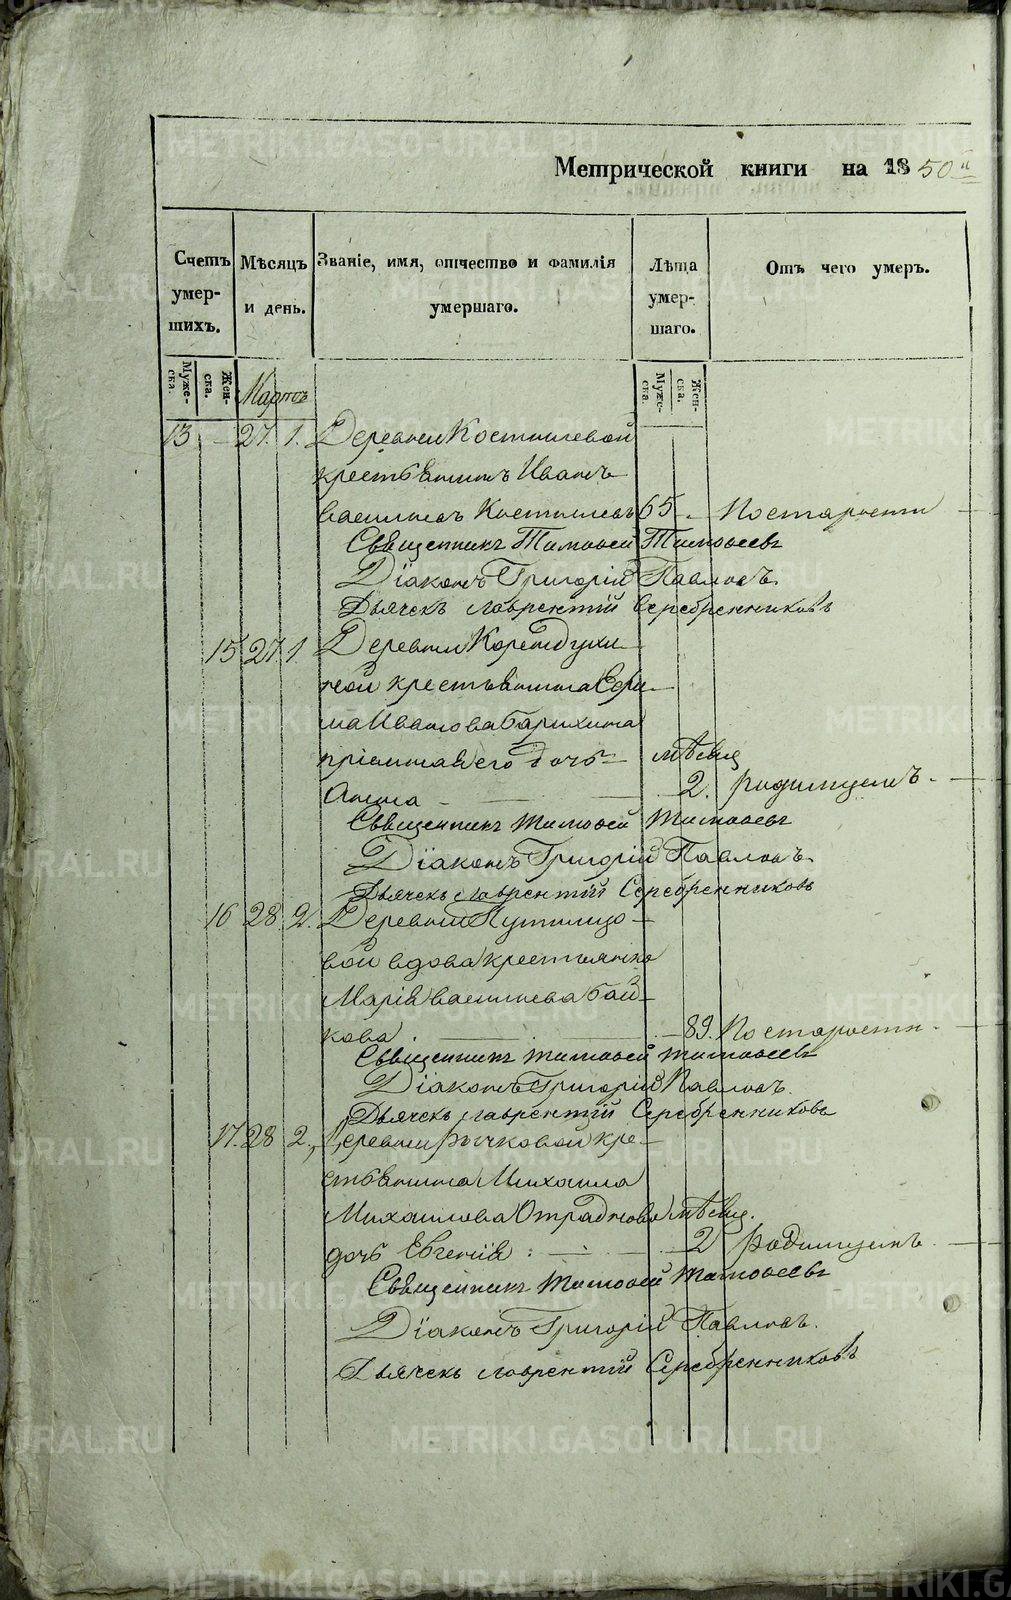 Метрической книги на 1850й
Счетъ умершихъ.
Мѣсяцъ и день.
Званіе, имя, отчество и фамилія умершаго.
Лѣта умершаго.
Отъ чего умеръ.
Мужеска.
Женска.
Мартъ
Мужеска.
Женска.
13 27. 1. Деревни Костылевой
крестьянинъ Иванъ
Васильевъ Костылевъ 65 По старости
Священникъ Тимофей Тимофеевъ
Діаконъ Григорій Павловъ.
Дьячекъ Лаврентій Серебренниковъ
15 27. 1. Деревни
ной крестьянина Ефи-
ма Иванова Барихина
пріемнаго его дочь мѣсяц
Анна 2. родимцемъ.
Священникъ Тимофей Тимофеевъ
Діаконъ Григорій Павловъ.
Дьячекъ Лаврентій Серебренниковъ
16 28 2. Деревни Путилицо-
вой вдова крестьянка
Марія Васильева Бай-
кова 89. По старости.
Священникъ Тимофей Тимофеевъ
Діаконъ Григорій Павловъ.
Дьячекъ Лаврентій Серебренниковъ
17. 28 2. Деревни Рычковой кре-
стьянина Михаила
Михаилова Отраднова мѣсяц.
дочь Евгенія 2 Родимцемъ
Священникъ Тимофей Тимофеевъ
Діаконъ Григорій Павловъ.
Дьячекъ Лаврентій Серебренниковъ
METRIKI.GASO-URAL.RU